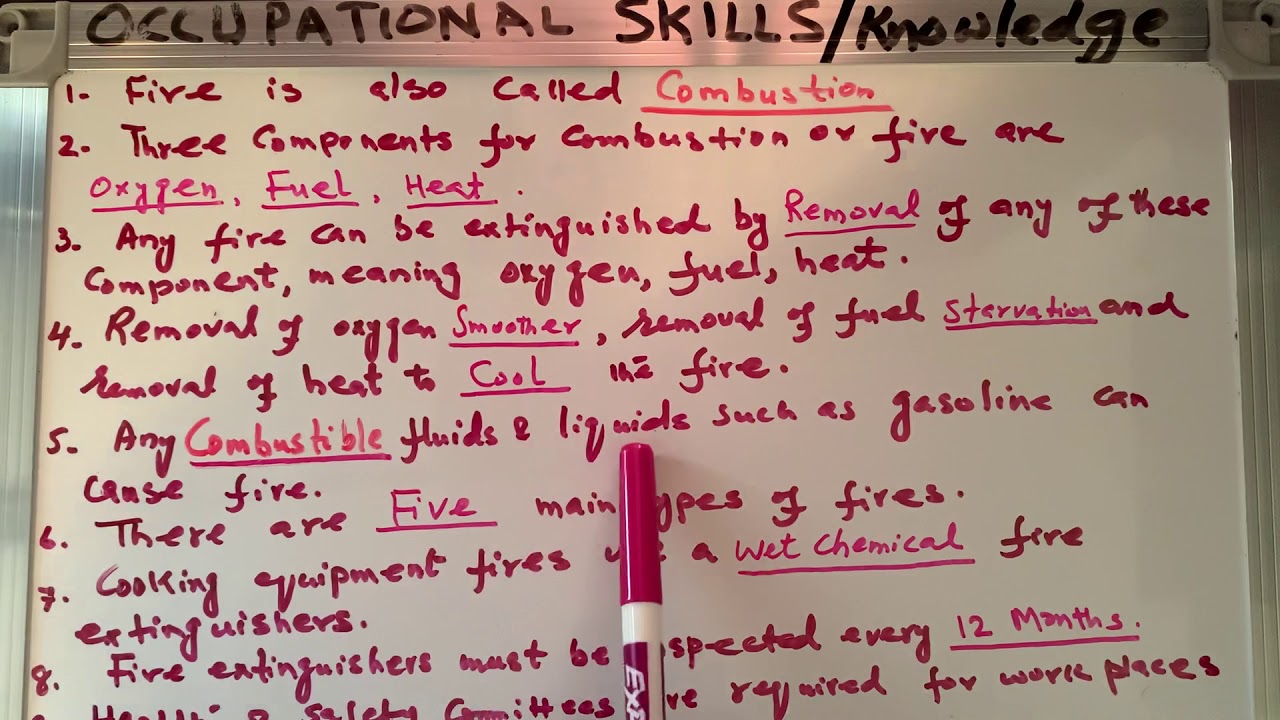 OCCUPATIONAL SKILLS/Knowledge
1- Fire is also called Combustion
2. Three Components for Combustion or fire are
Oxygen, Fuel, Heat.
3. Any fire can be extinguished by Removal of any of these
Component, meaning oxygen, fuel, heat.
4. Removal of oxygen Smoother, removal of fuel Starvation and
removal of heat to Cool the fire.
5. Any Combustible fluids & liquids such as gasoline can
cause fire.
6. There are Five main types of fires.
7. Cooking equipment fires a Wet Chemical fire
extinguishers.
8. Fire extinguishers must be spected every 12 Months.
Health & Safety Committees re required for work places
EXP